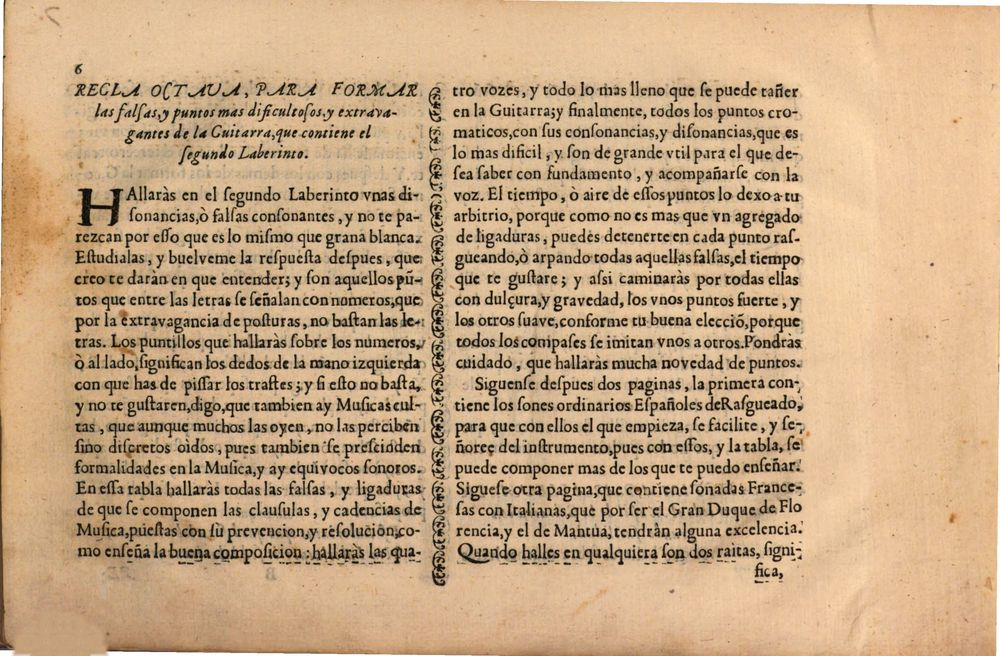 6
REGLA OCTAVA, PARA FORMAR
las falsas, y puntos mas dificultosos, y extrava-
gantes de la Guitarra, que contiene el
segundo Laberinto.
HAllaràs en el segundo Laberinto vnas di-
sonancias, ò falsas consonantes, y no te pa-
rezcan por esso que es lo mismo que grana blanca.
Estudialas, y buelveme la respuesta despues, que
creo te daràn en que entender; y son aquellos pũ-
tos que entre las letras se señalan con numeros, que
por la extravagancia de posturas, no bastan las le-
tras. Los puntillos que hallaràs sobre los numeros,
ò al lado, significan los dedos de la mano izquierda
con que has de pissar los trastes; y si esto no basta,
y no te gustaren, digo, que tambien ay Musicas cul-
tas, que aunque muchos las oyen, no las perciben
sino discretos oìdos, pues tambien se prescinden
formalidades en la Musica, y ay equivocos sonoros.
En essa tabla hallaràs todas las falsas, y ligaduras
de que se componen las clausulas, y cadencias de
Musica, puestas con su prevencion, y resolucion, co-
mo enseña la buena composicion: hallaràs las qua-
tro vozes, y todo lo mas lleno que se puede tañer
en la Guitarra; y finalmente, todos los puntos cro-
maticos, con sus consonancias, y disonancias, que es
lo mas dificil, y son de grande vtil para el que de-
sea saber con fundamento, y acompañarse con la
voz. El tiempo, ò aire de essos puntos lo dexo a tu
arbitrio, porque como no es mas que vn agregado
de ligaduras, puedes detenerte en cada punto ras-
gueando, ò arpando todas aquellas falsas, el tiempo
que te gustare; y assi caminaràs por todas ellas
con dulçura, y gravedad, los vnos puntos fuerte, y
los otros suave, conforme tu buena elecciõ, porque
todos los compases se imitan vnos a otros. Pondràs
cuidado, que hallaràs mucha novedad de puntos.
Siguense despues dos paginas, la primera con-
tiene los sones ordinarios Españoles de Rasgueado,
para que con ellos el que empieza, se facilite, y se-
ñoreè del instrumento, pues con essos, y la tabla, se
puede componer mas de los que te puedo enseñar.
Siguese otra pagina, que contiene sonadas France-
sas con Italianas, que por ser el Gran Duque de Flo
rencia, y el de Mantua, tendràn alguna excelencia.
Quando halles en qualquiera son dos raitas, signi-
fica,